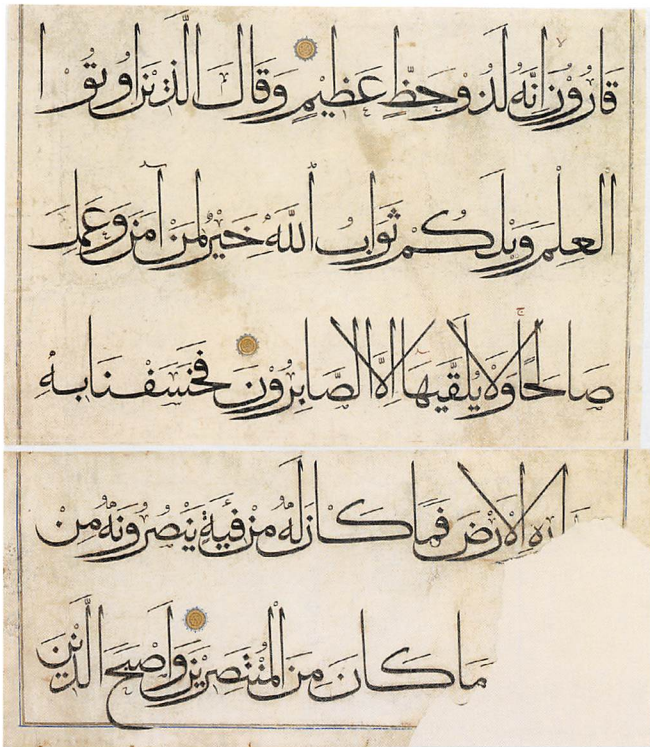 قَارُونُ إِنَّهُ لَذُو حَظٍّ عَظِيمٍ وَقَالَ الَّذِينَ أُوتُوا
الْعِلْمَ وَيْلَكُمْ ثَوَابُ اللَّهِ خَيْرٌ لِمَنْ آمَنَ وَعَمِلَ
صَالِحًا وَلَا يُلَقَّيهَا إِلَّا الصَّابِرُونَ فَخَسَفْنَا بِهِ
الْأَرْضَ فَمَا كَانَ لَهُ مِنْ فِئَةٍ يَنْصُرُونَهُ مِنْ
مَا كَانَ مِنَ الْمُنْتَصِرِينَ وَأَصْبَحَ الَّذِينَ